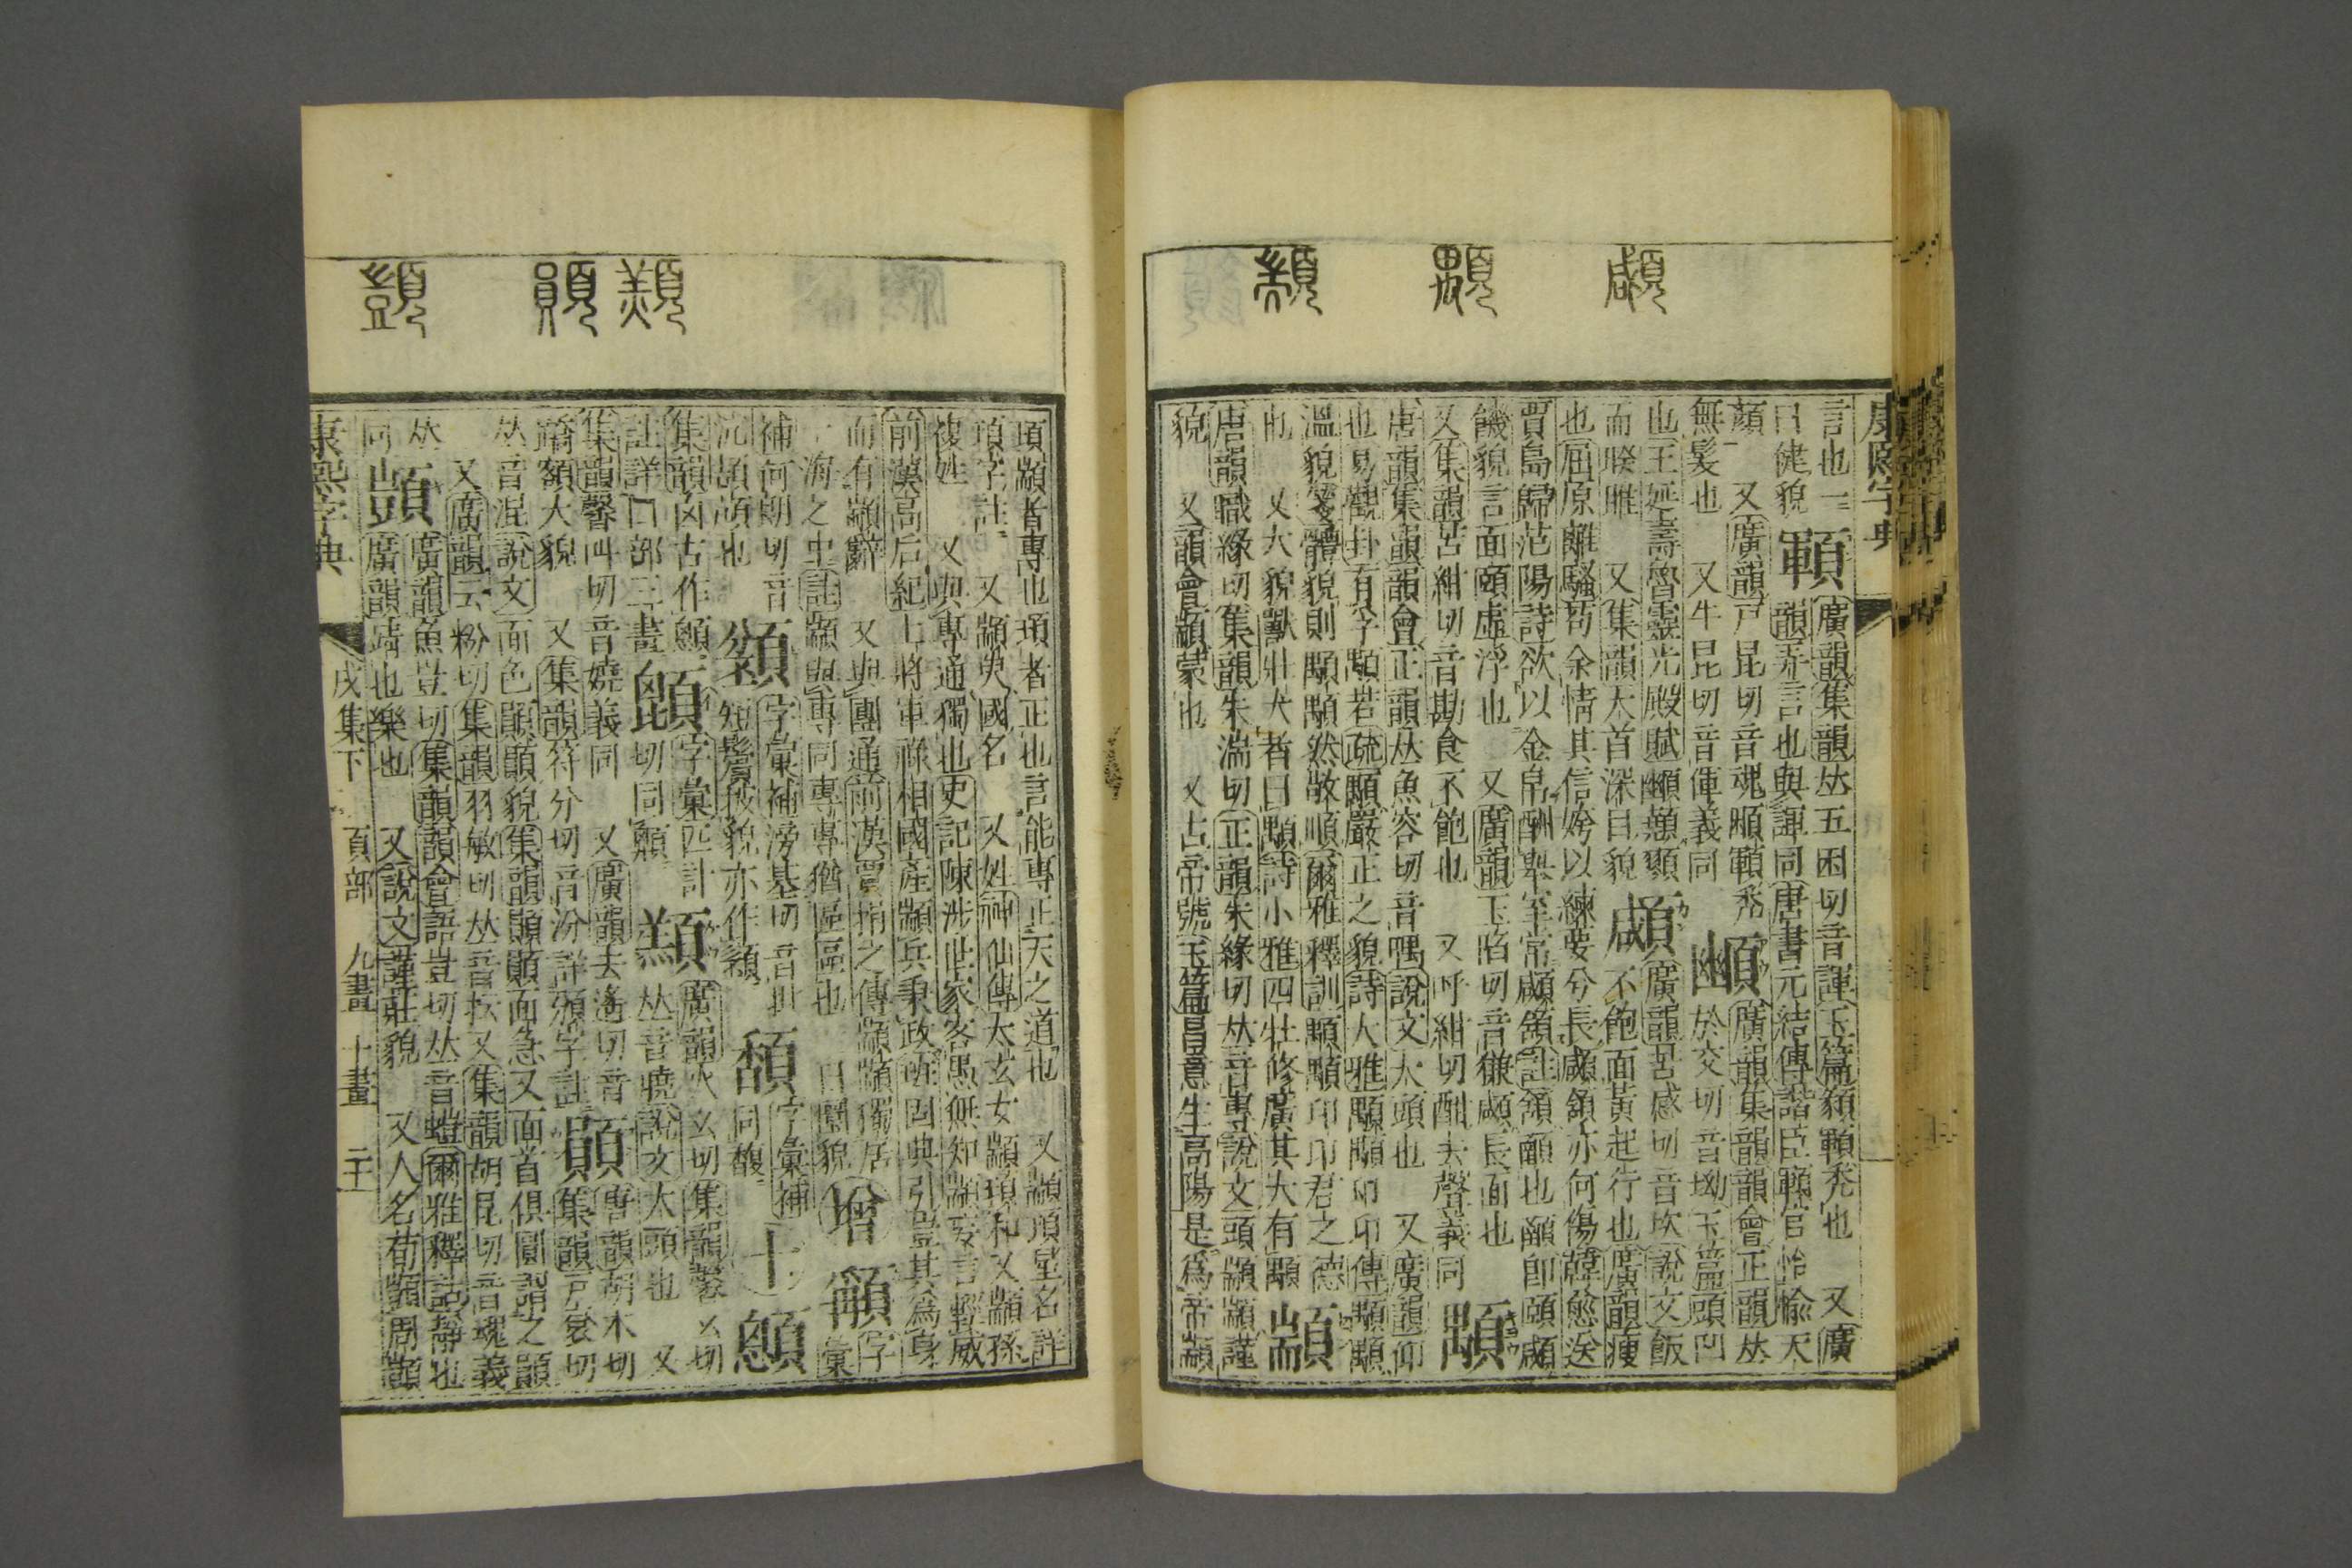 言也一
曰健貌
顐
廣韻集韻𠀤五困切音諢玉篇頛顐禿也 又廣
韻弄言也與諢同唐書元結傳諧臣顐官怡愉天
顏 又廣韻戸昆切音魂顐禿
無髮也 又牛昆切音僤義同
廣韻集韻韻會正韻𠀤
於交切音坳玉篇頭凹
也王延壽魯靈光殿賦
而睽睢 又集韻大首深目貌
顑
廣韻苦感切音坎說文飯
不飽面黃起行也廣韻瘦
也屈原離騷苟余情其信姱以練要兮長顑頷亦何傷韓愈送
賈島歸范陽詩欲以金帛酬舉室常顑頷註頷顄也顄卽頤顑
饑貌言面頤虛浮也 又廣韻玉陷切音顑長面也
又集韻苦紺切音勘食不飽也 又呼紺切酣去聲義同
顒
唐韻集韻韻會正韻𠀤魚容切音喁說文大頭也 又廣韻仰
也易觀卦有孚顒若疏顒嚴正之貌詩大雅顒顒卬卬傳顒顒
溫貌箋體貌則顒顒然敬順爾雅釋訓顒顒卬卬君之德
也 又大貌獸壯大者曰顒詩小雅四牡修廣其大有顒
顓
唐韻職緣切集韻朱湍切正韻朱緣切𠀤音專說文頭顓顓謹
貌 又韻會顓蒙也 又古帝號玉篇昌意生高陽是爲帝顓
頊顓者專也頊者正也言能專正天之道也 又顓頊星名詳
頊字註 又顓臾國名 又姓神仙傳太玄女顓頊和又顓孫
複姓 又與專通獨也史記陳涉世家客愚無知顓妄言輕威
前漢高后紀上將軍祿相國產顓兵秉政班固典引豈其爲身
而有顓辭 又與團通前漢賈捐之傳顓顓獨居
一海之中註顓與專同專專猶區區也
增
字彙
補何朗切音
沆頏頏也
字彙補滂基切音丕
短鬚髮貌亦作
字彙補
同馥
十
集韻囟古作顖
註詳囗部三畫
字彙匹計
切同
纇
廣韻火幺切集韻馨幺切
𠀤音曉說文大頭也 又
集韻馨叫切音嬈義同 又廣韻去遙切音
蹻額大貌 又集韻符分切音汾詳頒字註
顐
唐韻胡本切
集韻戸袞切
𠀤音混說文面色顚顚貌集韻顚顚面急又面首俱圓謂之顚
又廣韻云粉切集韻羽敏切𠀤音抎又集韻胡昆切音魂義
𠀤
同
顗
廣韻魚豈切集韻韻會語豈切𠀤音螘爾雅釋詁靜也
廣韻靖也樂也 又說文謹莊貌 又人名荀顗周顗
康熙字典
戌集下 頁部 九畫 十畫 二十